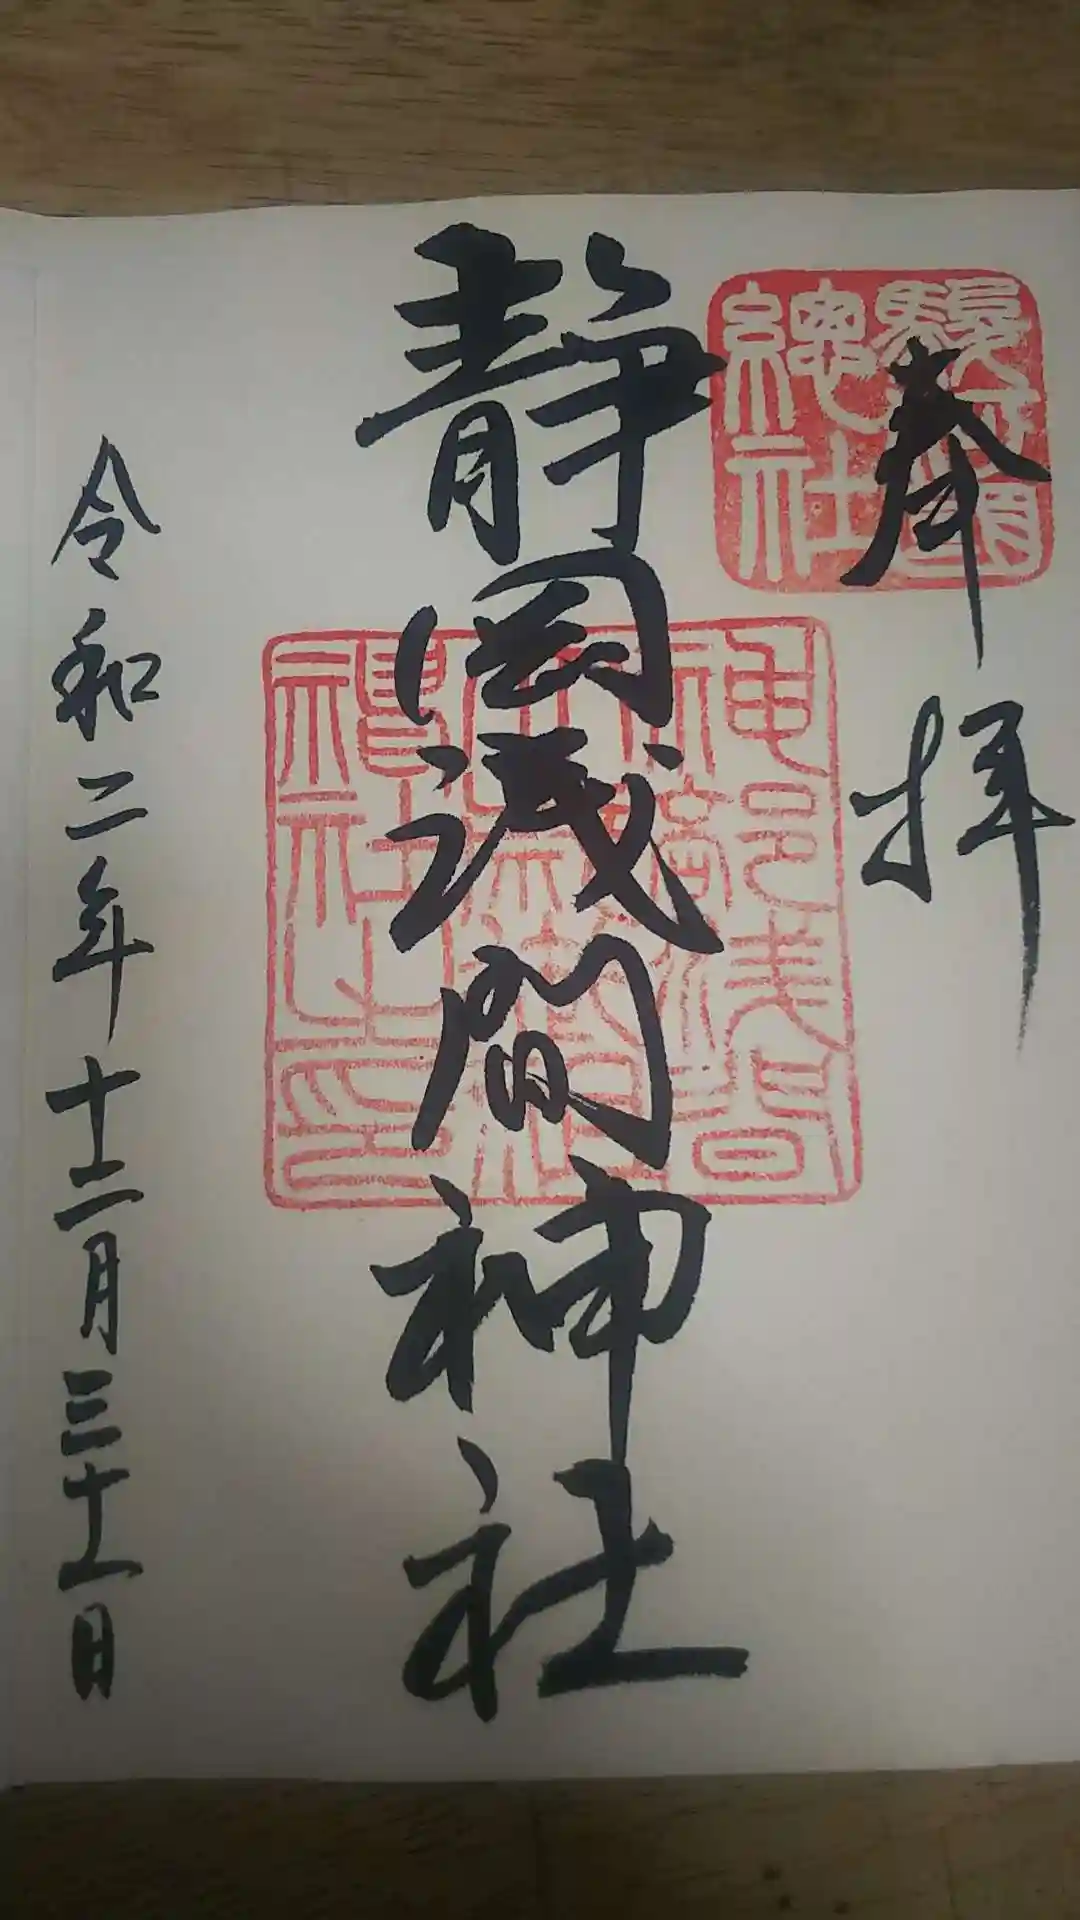 奉拝
駿河國總社
静岡浅間神社
神部浅間大歳御祖神社之印
令和二年十二月三十一日